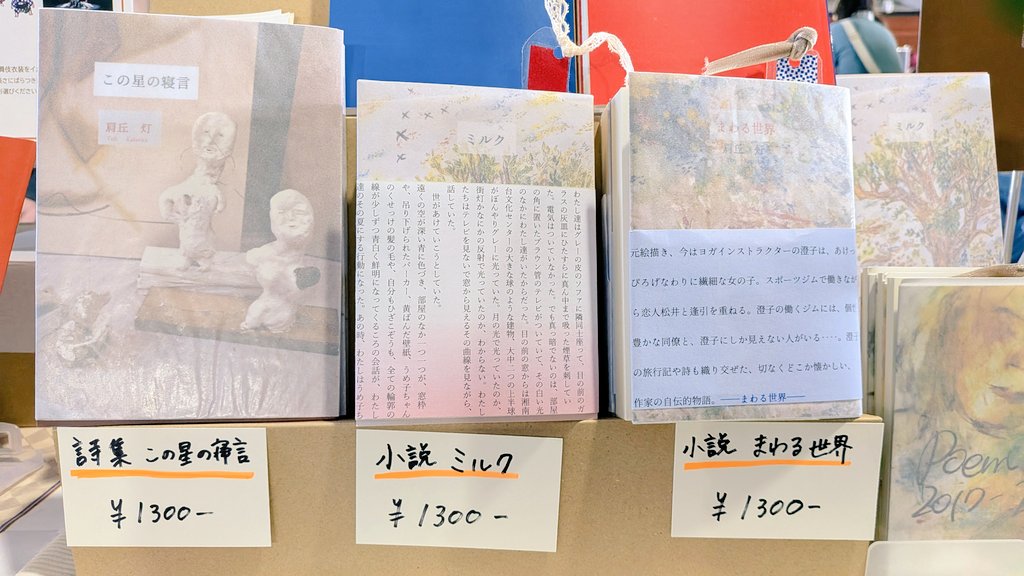 舞伎衣装をイ
長さにばらつき
選びください
この星の寝言
肩丘 灯
ミルク
わたし達はグレーの皮のソファに隣同士座って、目の前のガ
ラスの灰皿にひたすらに真ん中まで吸った煙草を刺してい
た。電気はついていなかった。でも真っ暗でないのは、部屋
の角に置いたブラウン管のテレビがついていて、その白い光
のなかにわたし達がいたからだった。目の前の窓からは湘南
台文化センターの大きな球のような建物、大中二つの上半球
がぼんやりグレーに光っていた。月の光で光っていたのか、
街灯かなにかの反射で光っていたのか、わからない。わたし
たちはテレビを見ないで窓から見えるその曲線を見ながら、
話していた。
世があけていこうとしていた。
遠くの空が深い青に色づき、部屋のなか一つ一つが、窓枠
や、吊り下げられたパーカー、黄ばんだ壁紙、うめ子ちゃん
のくせっけの髪の毛や、自分もひざこぞうも、全ての輪郭の
線が少しずつ青白く鮮明になってくるころの会話が、わたし
達のその夏にする行動になった。あの時、わたしはうめ子
まわる世界
肩丘 灯
元絵描き、今はヨガインストラクターの澄子は、あけっ
ぴろげなわりに繊細な女の子。スポーツジムで働きなが
ら恋人松井と逢引を重ねる。澄子の働くジムには、個性
豊かな同僚と、澄子にしか見えない人がいる‥‥。澄子
の旅行記や詩も織り交ぜた、切なくどこか懐かしい、
作家の自伝的物語。――まわる世界――
ミルク
Poem
2017-
詩集 この星の寝言
¥1300-
小説 ミルク
¥1300-
小説 まわる世界
¥1300-